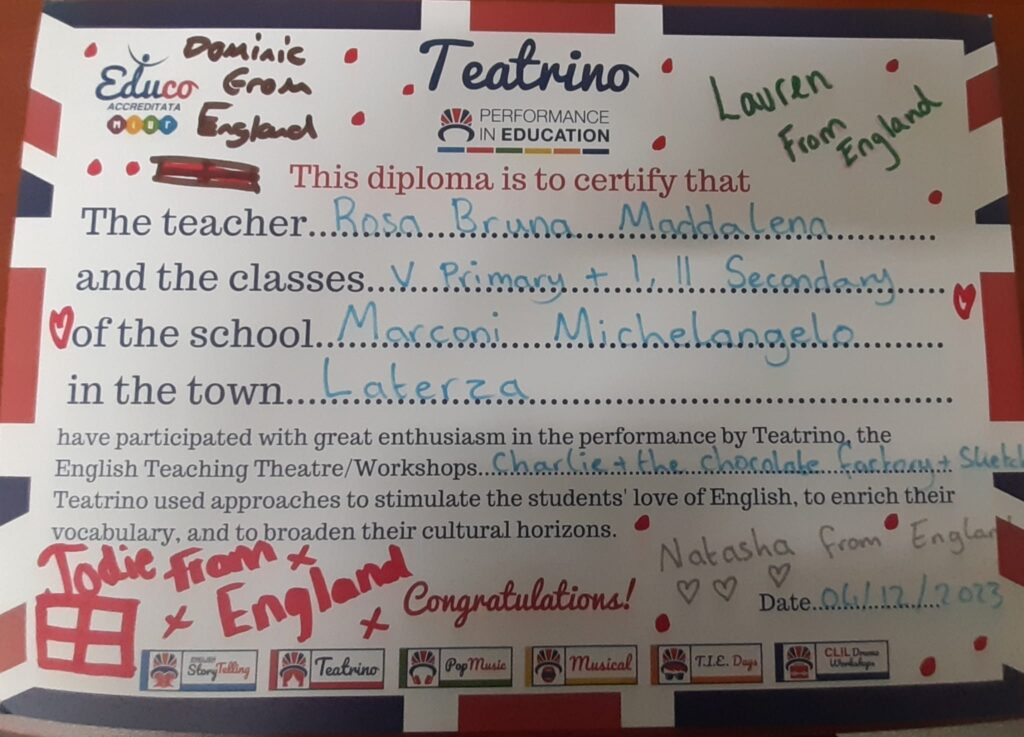 Educo
ACCREDITATA
MIUR
Dominic
From
England
Teatrino
PERFORMANCE
IN EDUCATION
Lauren
From
England
This diploma is to certify that
The teacher...Rosa Bruna Maddalena
and the classes...V Primary + I, II Secondary
of the school...Marconi Michelangelo
in the town...Laterza
have participated with great enthusiasm in the performance by Teatrino, the
English Teaching Theatre/Workshops...Charlie + the chocolate factory + Sketch
Teatrino used approaches to stimulate the students' love of English, to enrich their
vocabulary, and to broaden their cultural horizons.
Jodie from
England
Congratulations!
Natasha from England
Date...04/12/2023
ENGLISH
StoryTelling
Teatrino
PopMusic
Musical
T.I.E. Days
CLIL Drama
Workshops